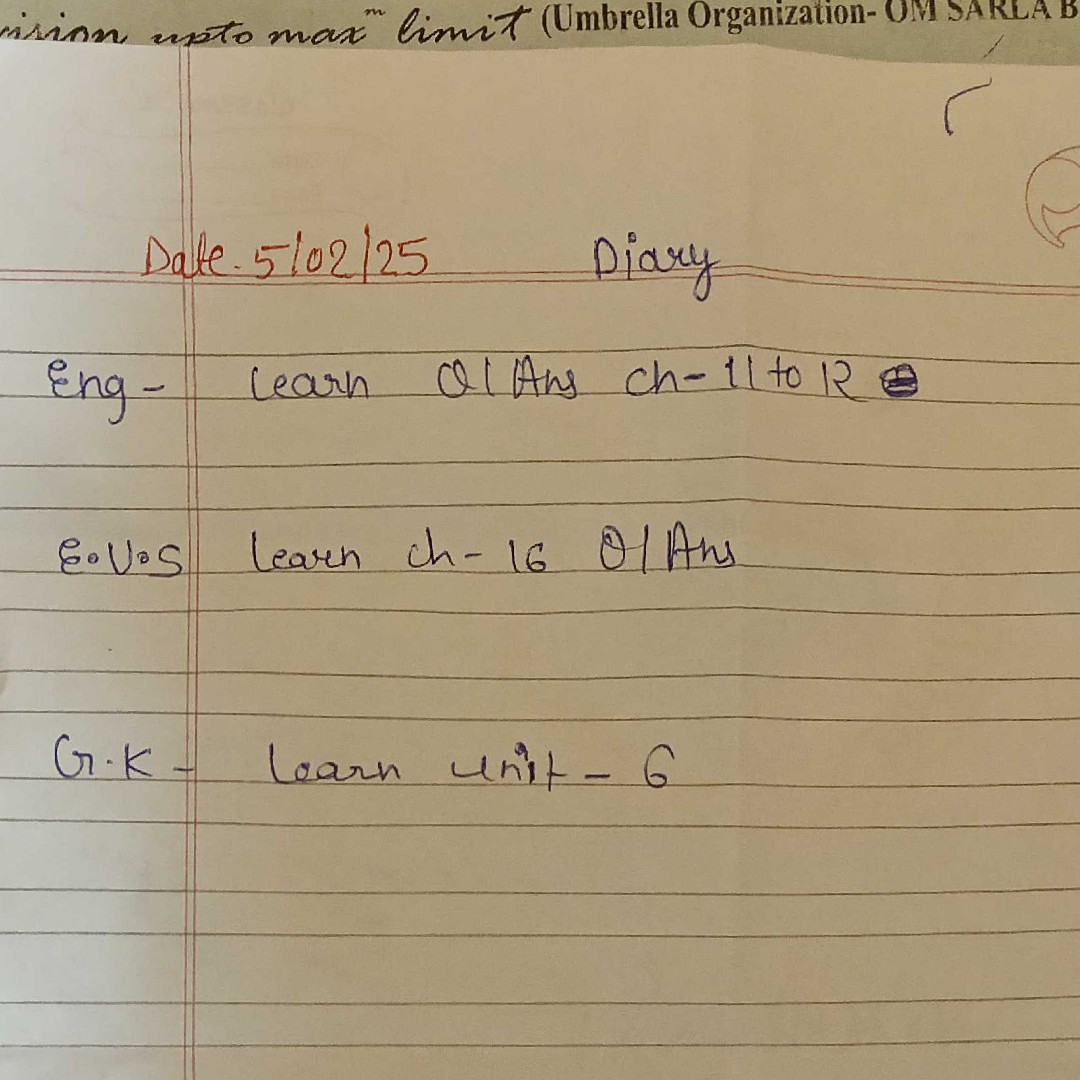 upto maxᵐ limit (Umbrella Organization- OM SARLA
Date. 5/02/25 Diary
Eng - learn Q/Ans ch- 11 to 12
E.V.S learn ch- 16 Q/Ans
G.K - learn unit - 6